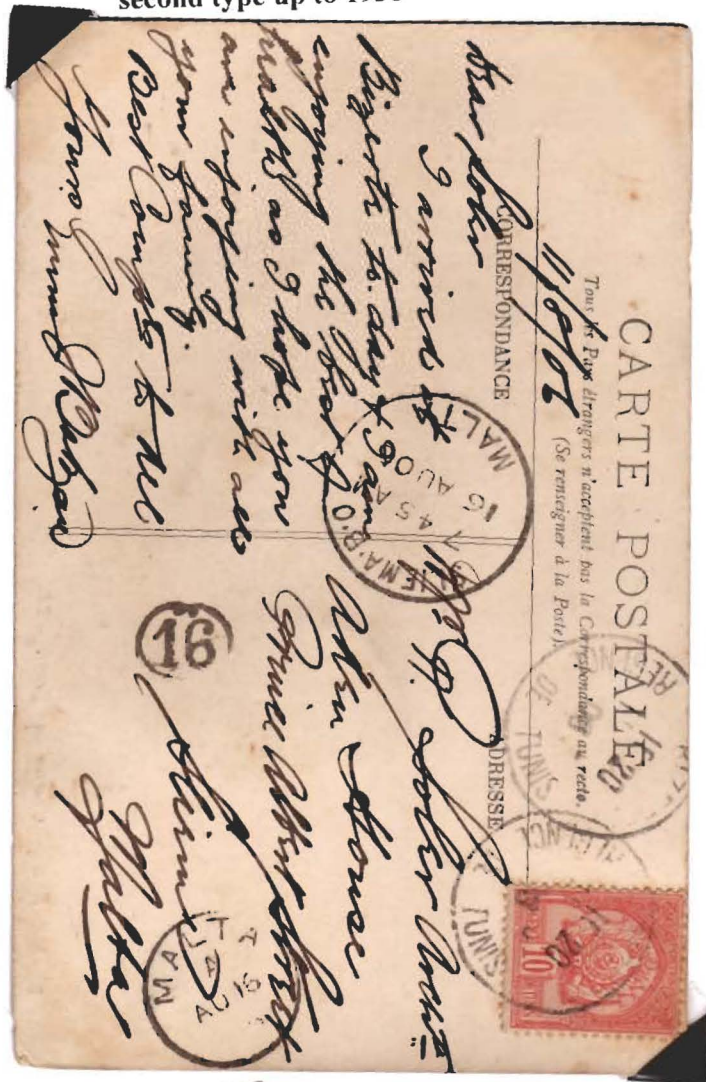 second type up to
CARTE POSTALE
Tous les Pays étrangers n'acceptent pas la Correspondance au recto.
(Se renseigner à la Poste).
CORRESPONDANCE
ADRESSE
11/8/06
Dear Soler
I arrived at
Bizerta to day & I am
enjoying the best of
health as I hope you
are enjoying with all
your family.
Best Compts to all
Yours
Mr P. Soler Archt
House
Prince Albert Street
Sliema
Malta
IEMA·B·O
7 45 A
16 AU 06
MALT
16
MA
AU 16
REGENCE DE TUNIS
11 20
10